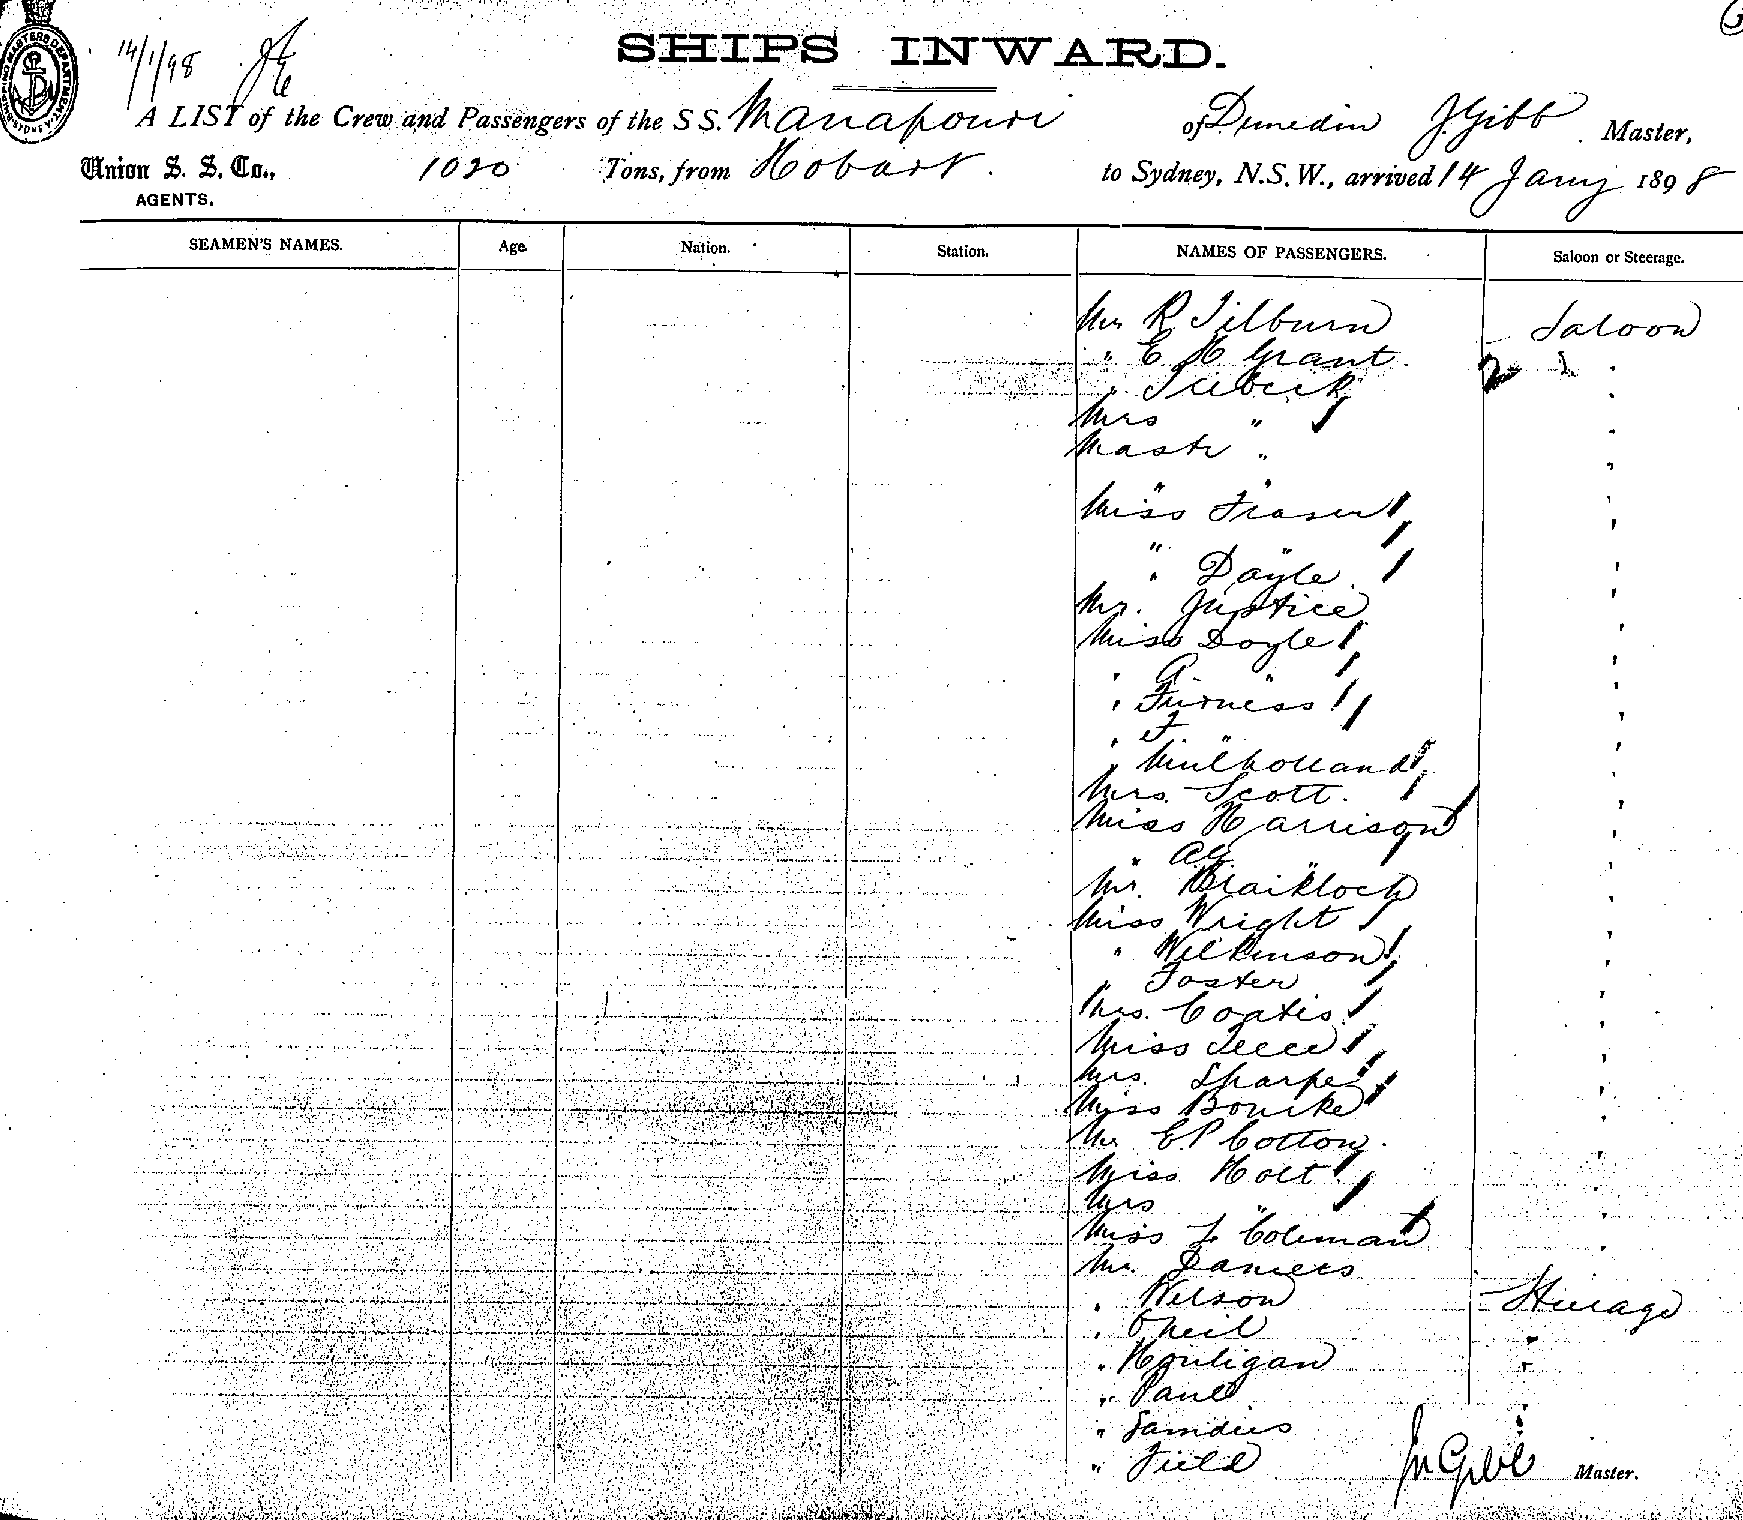 14/1/98
SHIPS INWARD.
A LIST of the Crew and Passengers of the SS. Manapouri of Dunedin J. Gibb Master,
Union S. S. Co., 1020 Tons, from Hobart. to Sydney, N.S.W., arrived 14 Jany 1898
AGENTS.
SEAMEN'S NAMES. Age. Nation. Station. NAMES OF PASSENGERS. Saloon or Steerage.
Mr R Tilburn Saloon
" E H Grant "
" Trebeck "
Mrs " "
Mastr " "
" " "
Miss Fraser "
" " "
" Dayle "
Mr. Justice "
Miss Doyle "
" G " "
" Furness "
" F " "
" Mulholland "
Mrs. Scott. "
Miss Harrison "
" AG " "
Mr. Blaikloch "
Miss Wright "
" Wilkinson "
" Foster "
Mrs. Coates "
Miss Teece "
Mrs. Sharpe "
Miss Bourke "
Mr C P Cotton "
Miss Holt "
Mrs " "
Miss L Coleman "
Mr. Daniels
" Wilson Steerage
" Oneil "
" Houligan "
" Paul "
" Samders "
" Field Jn Gibb Master.